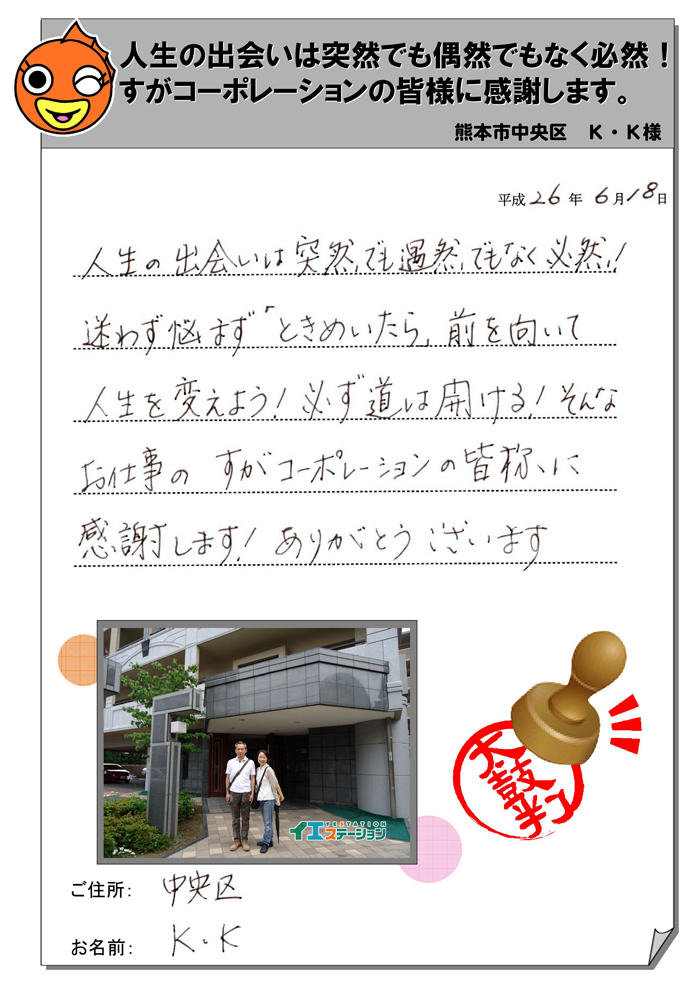 人生の出会いは突然でも偶然でもなく必然！
すがコーポレーションの皆様に感謝します。
熊本市中央区　K・K様
平成26年 6月18日
人生の出会いは突然でも遇然でもなく必然！
迷わず悩まず「ときめいたら」前を向いて
人生を変えよう！必ず道は開ける！そんな
お仕事の すがコーポレーションの皆称、に
感謝します！ありがとうございます
YESTATION
イエステーション
太鼓判
ご住所： 中央区
お名前： K.K